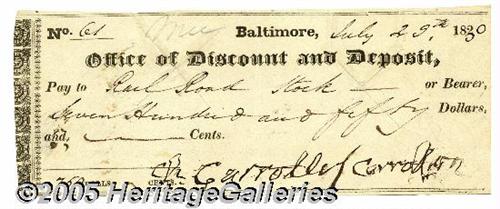 No. 61 Baltimore, July 29th 1830
Office of Discount and Deposit,
Pay to Rail Road Stock — or Bearer,
Seven Hundred and fifty Dollars,
and — Cents.
750 DOLLS. CENTS. Ch Carroll of Carrollton
© 2005 HeritageGalleries